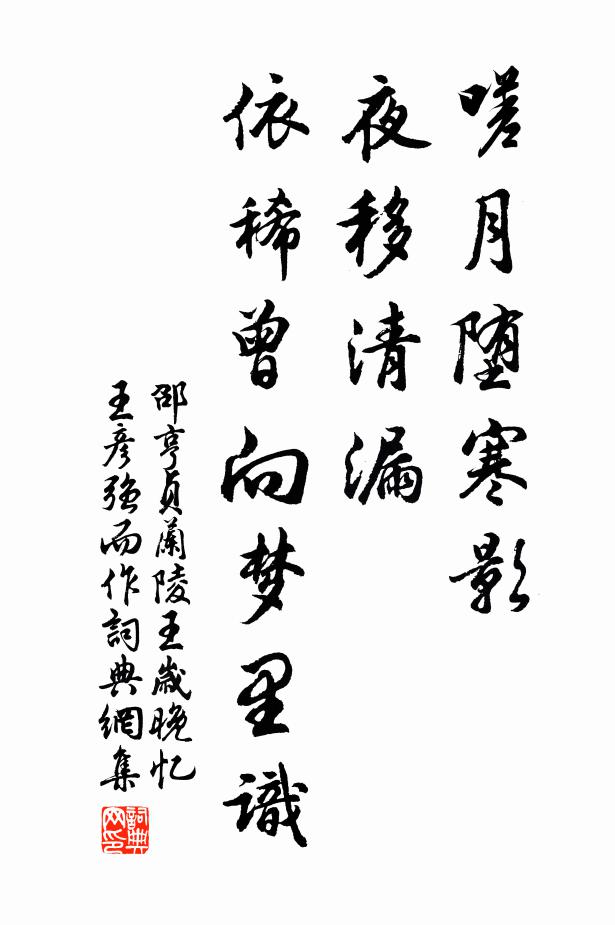 嗟月堕寒影
夜移清漏
依稀曾向梦里識
邵亨貞蘭陵王歲晚忆
王彦强而作詞典網集
詞典
网印